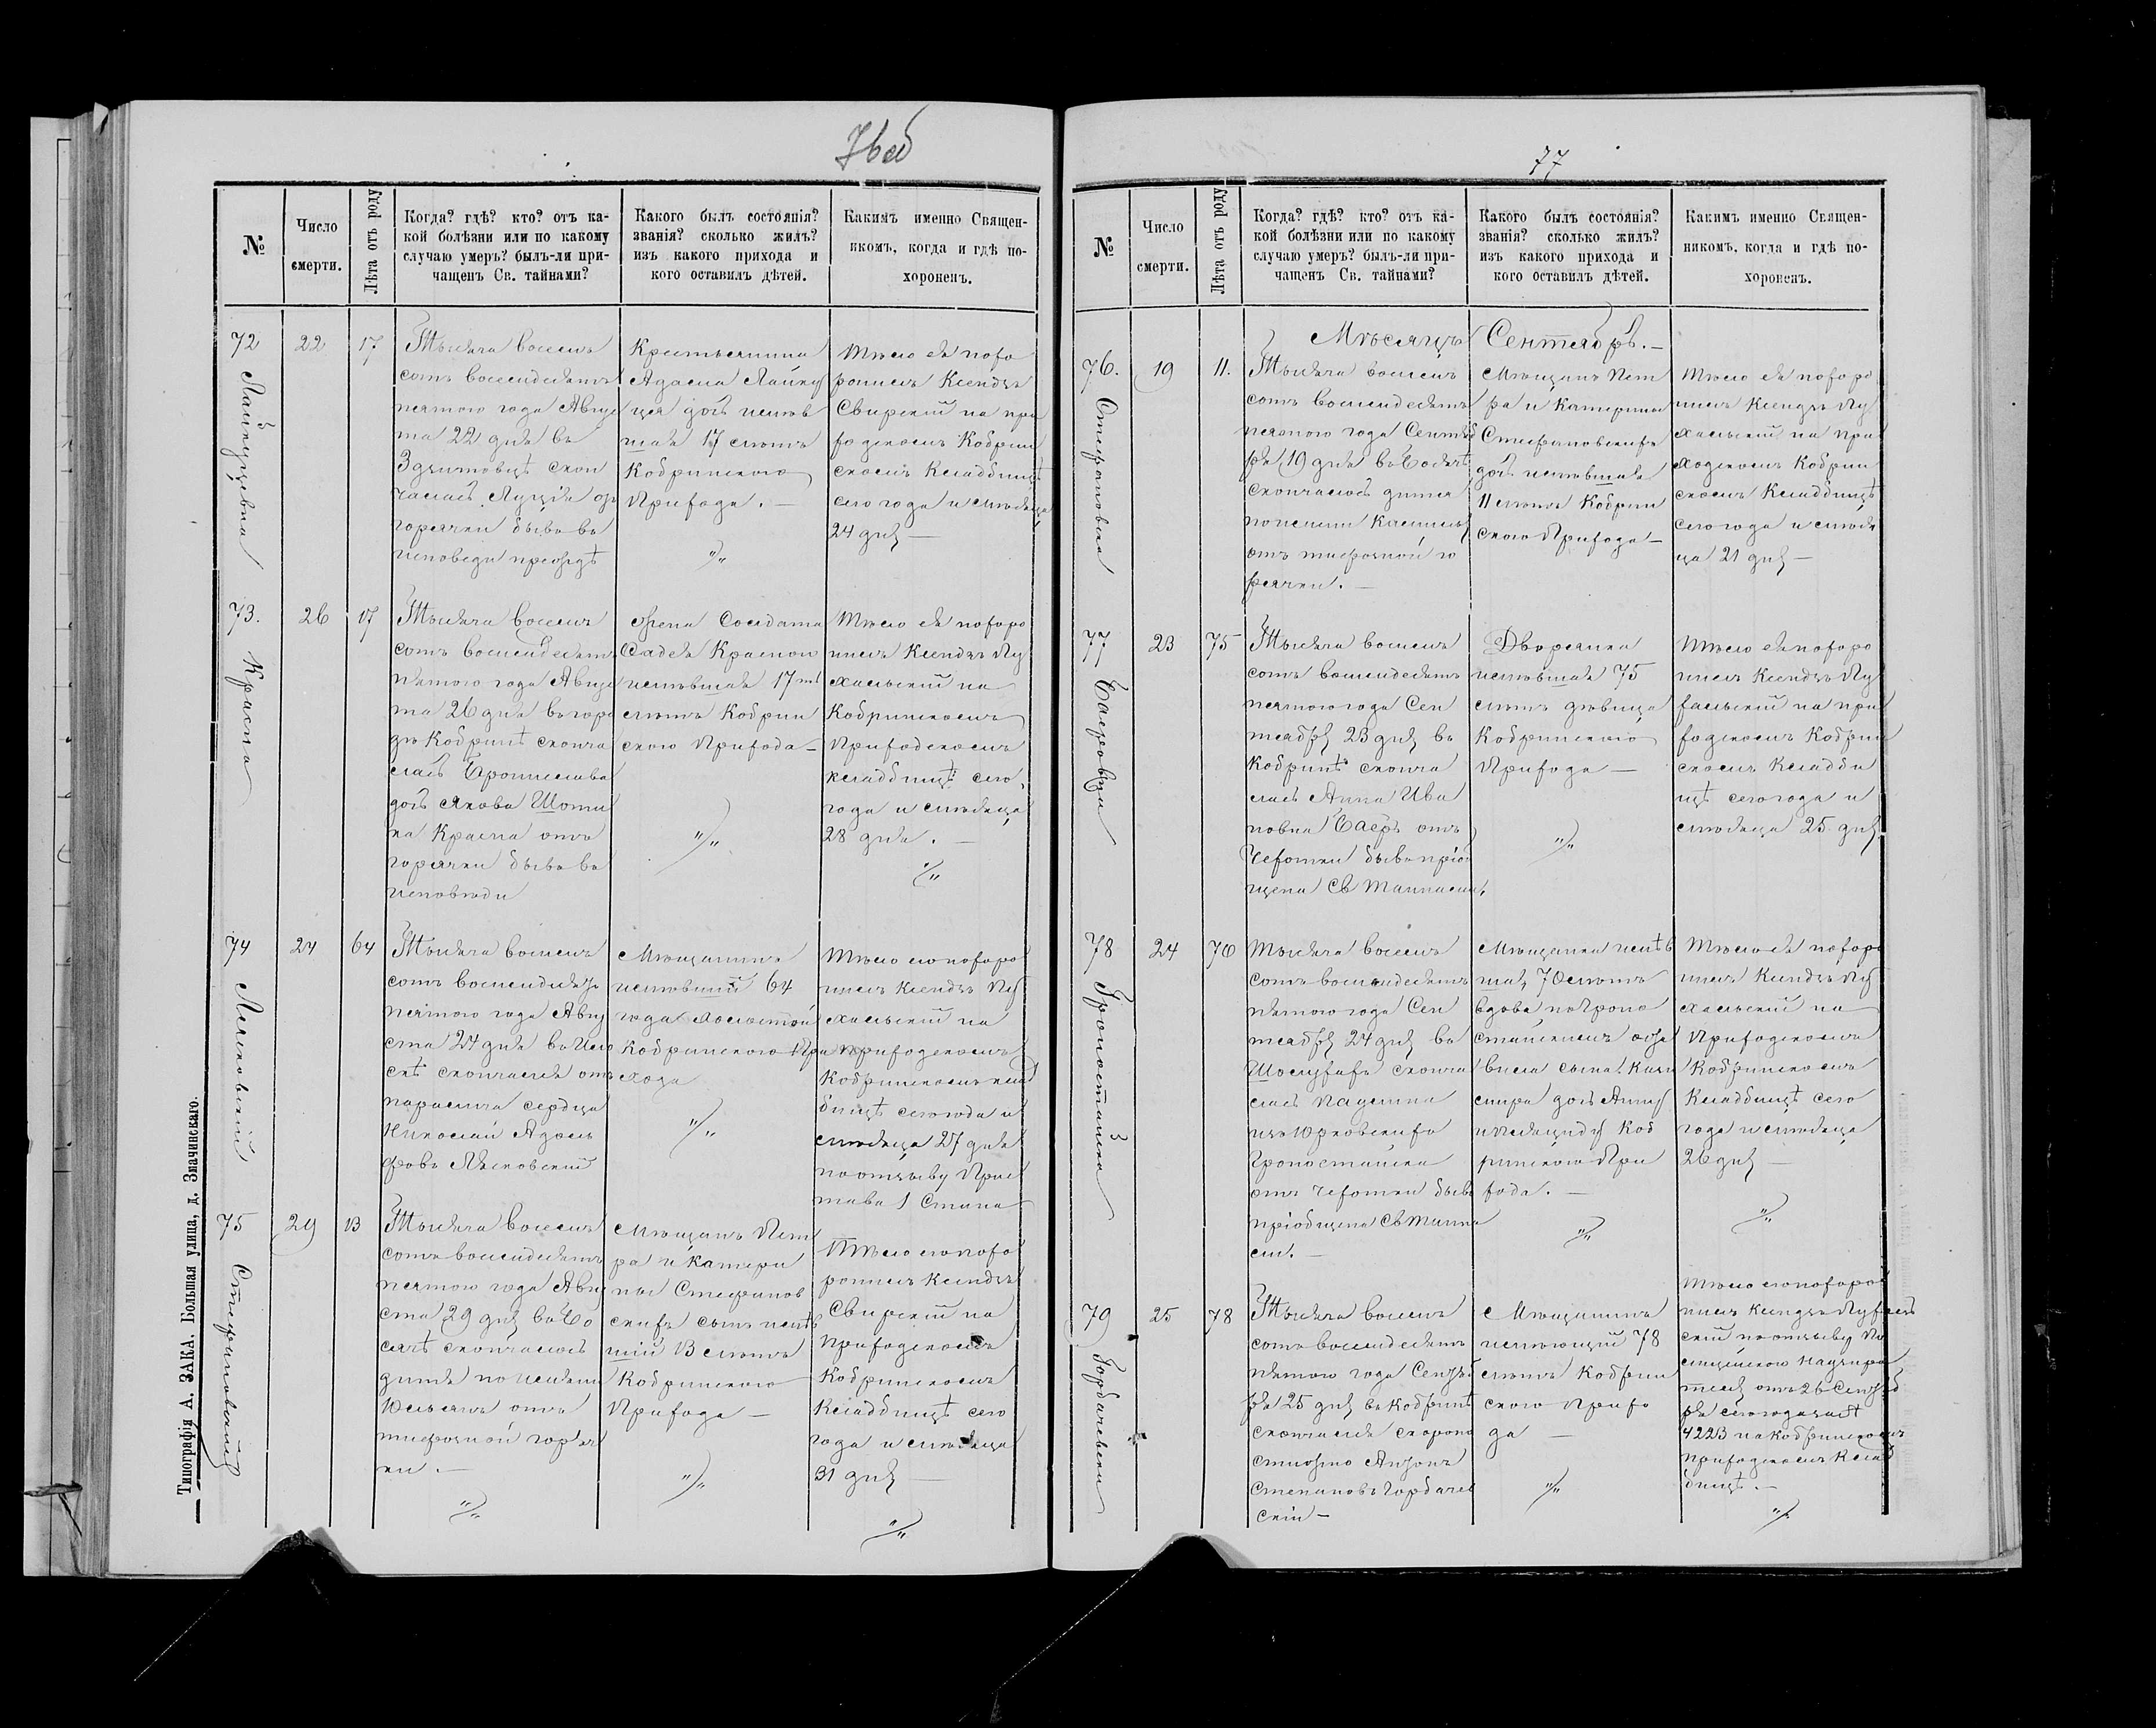 76об
№
Число
смерти.
Лѣта отъ роду
Когда? гдѣ? кто? отъ ка-
кой болѣзни или по какому
случаю умеръ? былъ-ли при-
чащенъ Св. тайнами?
Какого былъ состоянія?
званія? сколько жилъ?
изъ какого прихода и
кого оставилъ дѣтей.
Какимъ именно Священ-
никомъ, когда и гдѣ по-
хороненъ.
72
22
17
Тысяча восемь
сотъ восемдесятъ
пятого года Авгус
та 22 дня въ
скон
чалась Луція отъ
горячки бывъ въ
исповеди
Крестьянина
Адама
дочь имѣв
шая 17 лѣтъ
Кобринскаго
Прихода. —
Тѣло ея похо
ронилъ Ксендзъ
Свирскій на при
ходскомъ Кобрин
скомъ Кладбищѣ
сего года и мѣсяца
24 дня —
73.
Красна
26
17
Тысяча восемь
сотъ восемдесятъ
пятого года Авгус
та 26 дня въ горо
дѣ Кобринѣ сконча
лась Бронислава
дочь Якова
на Красна отъ
горячки бывъ въ
исповѣди
Жена Солдата
Фадея Красно
имѣвшая 17 ть
лѣтъ Кобрин
скаго Прихода —
Тѣло ея похоро
нилъ Ксендзъ Пу
хальскій на
Кобринскомъ
Приходскомъ
кладбищѣ сего
года и мѣсяца
28 дня. —
74
Лясковскій
24
64
Тысяча восемь
сотъ восемдесятъ
пятого года Авгу
ста 24 дня въ
скончался отъ
паралича сердца
Николай Адоль
фовъ Лясковскій
Мѣщанинъ
имѣвшій 64
года холостой
Кобринского При
хода
Тѣло его похоро
нилъ Ксендзъ Пу
хальскій на
приходскомъ
Кобринскомъ клад
бищѣ сего года и
мѣсяца 27 дня
по отзыву Прис
тава 1 Стана
75
Стефановскій
29
13
Тысяча восемь
сотъ восемдесятъ
пятого года Авгу
ста 29 дня въ Бо
скончалось
дитя по имени
Юльянъ отъ
тифозной горяч
ки. —
Мѣщанъ Пет
ра и Катери
ны Стефанов
скихъ сынъ имѣв
шій 13 лѣтъ
Кобринского
Прихода —
Тѣло его похо
ронилъ Ксендзъ
Свирскій на
приходскомъ
Кобринскомъ
Кладбищѣ сего
года и мѣсяца
31 дня —
Типографія А. ЗАКА. Большая улица, д. Значинскаго.
77
№
Число
смерти.
Лѣта отъ роду
Когда? гдѣ? кто? отъ ка-
кой болѣзни или по какому
случаю умеръ? былъ-ли при-
чащенъ Св. тайнами?
Какого былъ состоянія?
званія? сколько жилъ?
изъ какого прихода и
кого оставилъ дѣтей.
Какимъ именно Священ-
никомъ, когда и гдѣ по-
хороненъ.
Мѣсяцъ Сентябрь. —
76.
Стефановна
19
11.
Тысяча восемь
сотъ восемдесятъ
пятого года Сентяб
ря 19 дня въ
скончалось дитя
по имени
отъ тифозной го
рячки. —
Мѣщанъ Пет
ра и Катерины
Стефановскихъ
дочь имѣвшая
11 лѣтъ Кобрин
ского Прихода —
Тѣло ея похоро
нилъ Ксендзъ Пу
хальскій на при
ходскомъ Кобрин
скомъ Кладбищѣ
сего года и мѣся
ца 21 дня —
77
23
75
Тысяча восемь
сотъ восемдесятъ
пятого года Сен
тября 23 дня въ
Кобринѣ сконча
лась Анна Ива
новна Баеръ отъ
чехотки бывъ пріоб
щена Св Тайнами.
Дворянка
имѣвшая 75
лѣтъ дѣвица
Кобринского
Прихода —
Тѣло ея похоро
нилъ Ксендзъ Пу
хальскій на при
ходскомъ Кобрин
скомъ Кладби
щѣ сего года и
мѣсяца 25 дня
78
Гроностайска
24
70
Тысяча восемь
сотъ восемдесятъ
пятого года Сен
тября 24 дня въ
сконча
лась Паулина
изъ Юрковскихъ
Гроностайска
отъ чехотки бывъ
пріобщена Св Тайна
ми. —
Мѣщанка имѣв
шая 70 лѣтъ
вдова по Гроно
стайскимъ оста
вила сына Кази
мира дочь Анну
и Фелициду Коб
ринского При
хода. —
Тѣло ея похоро
нилъ Ксендзъ Пу
хальскій на
Приходскомъ
Кобринскомъ
Кладбищѣ сего
года и мѣсяца
26 дня —
79
Горбачевскій
25
78
Тысяча восемь
сотъ восемдесятъ
пятого года Сентяб
ря 25 дня въ Кобринѣ
скончался скоропо
стижно Антонъ
Степановъ Горбачев
скій —
Мѣщанинъ
имѣющій 78
лѣтъ Кобрин
ского Прихо
да —
Тѣло его похоро
нилъ Ксендзъ Пухаль
скій по отзыву По
лицейского Надзира
теля отъ 26 Сентяб
ря сего года за №
4223 на Кобринскомъ
приходскомъ Клад
бищѣ. —